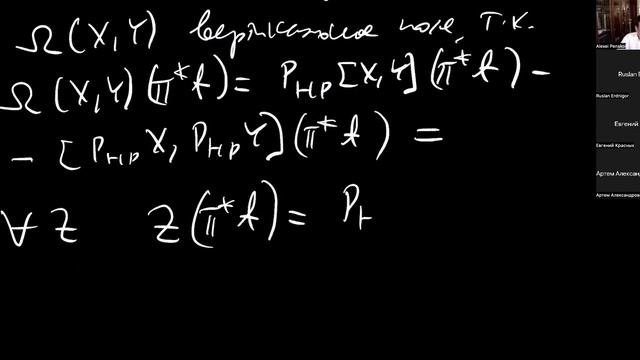 Ω(X,Y) вертикальное поле, т.к.
Ω(X,Y)(π*f) = P_HP[X,Y](π*f) –
– [P_HP X, P_HP Y](π*f) =
∀ Z Z(π*f) = P_H
Alexei Penskoi
Ruslan
Ruslan Erdnigor
Евгений
Евгений Красных
Артем Александр
Артем Александров